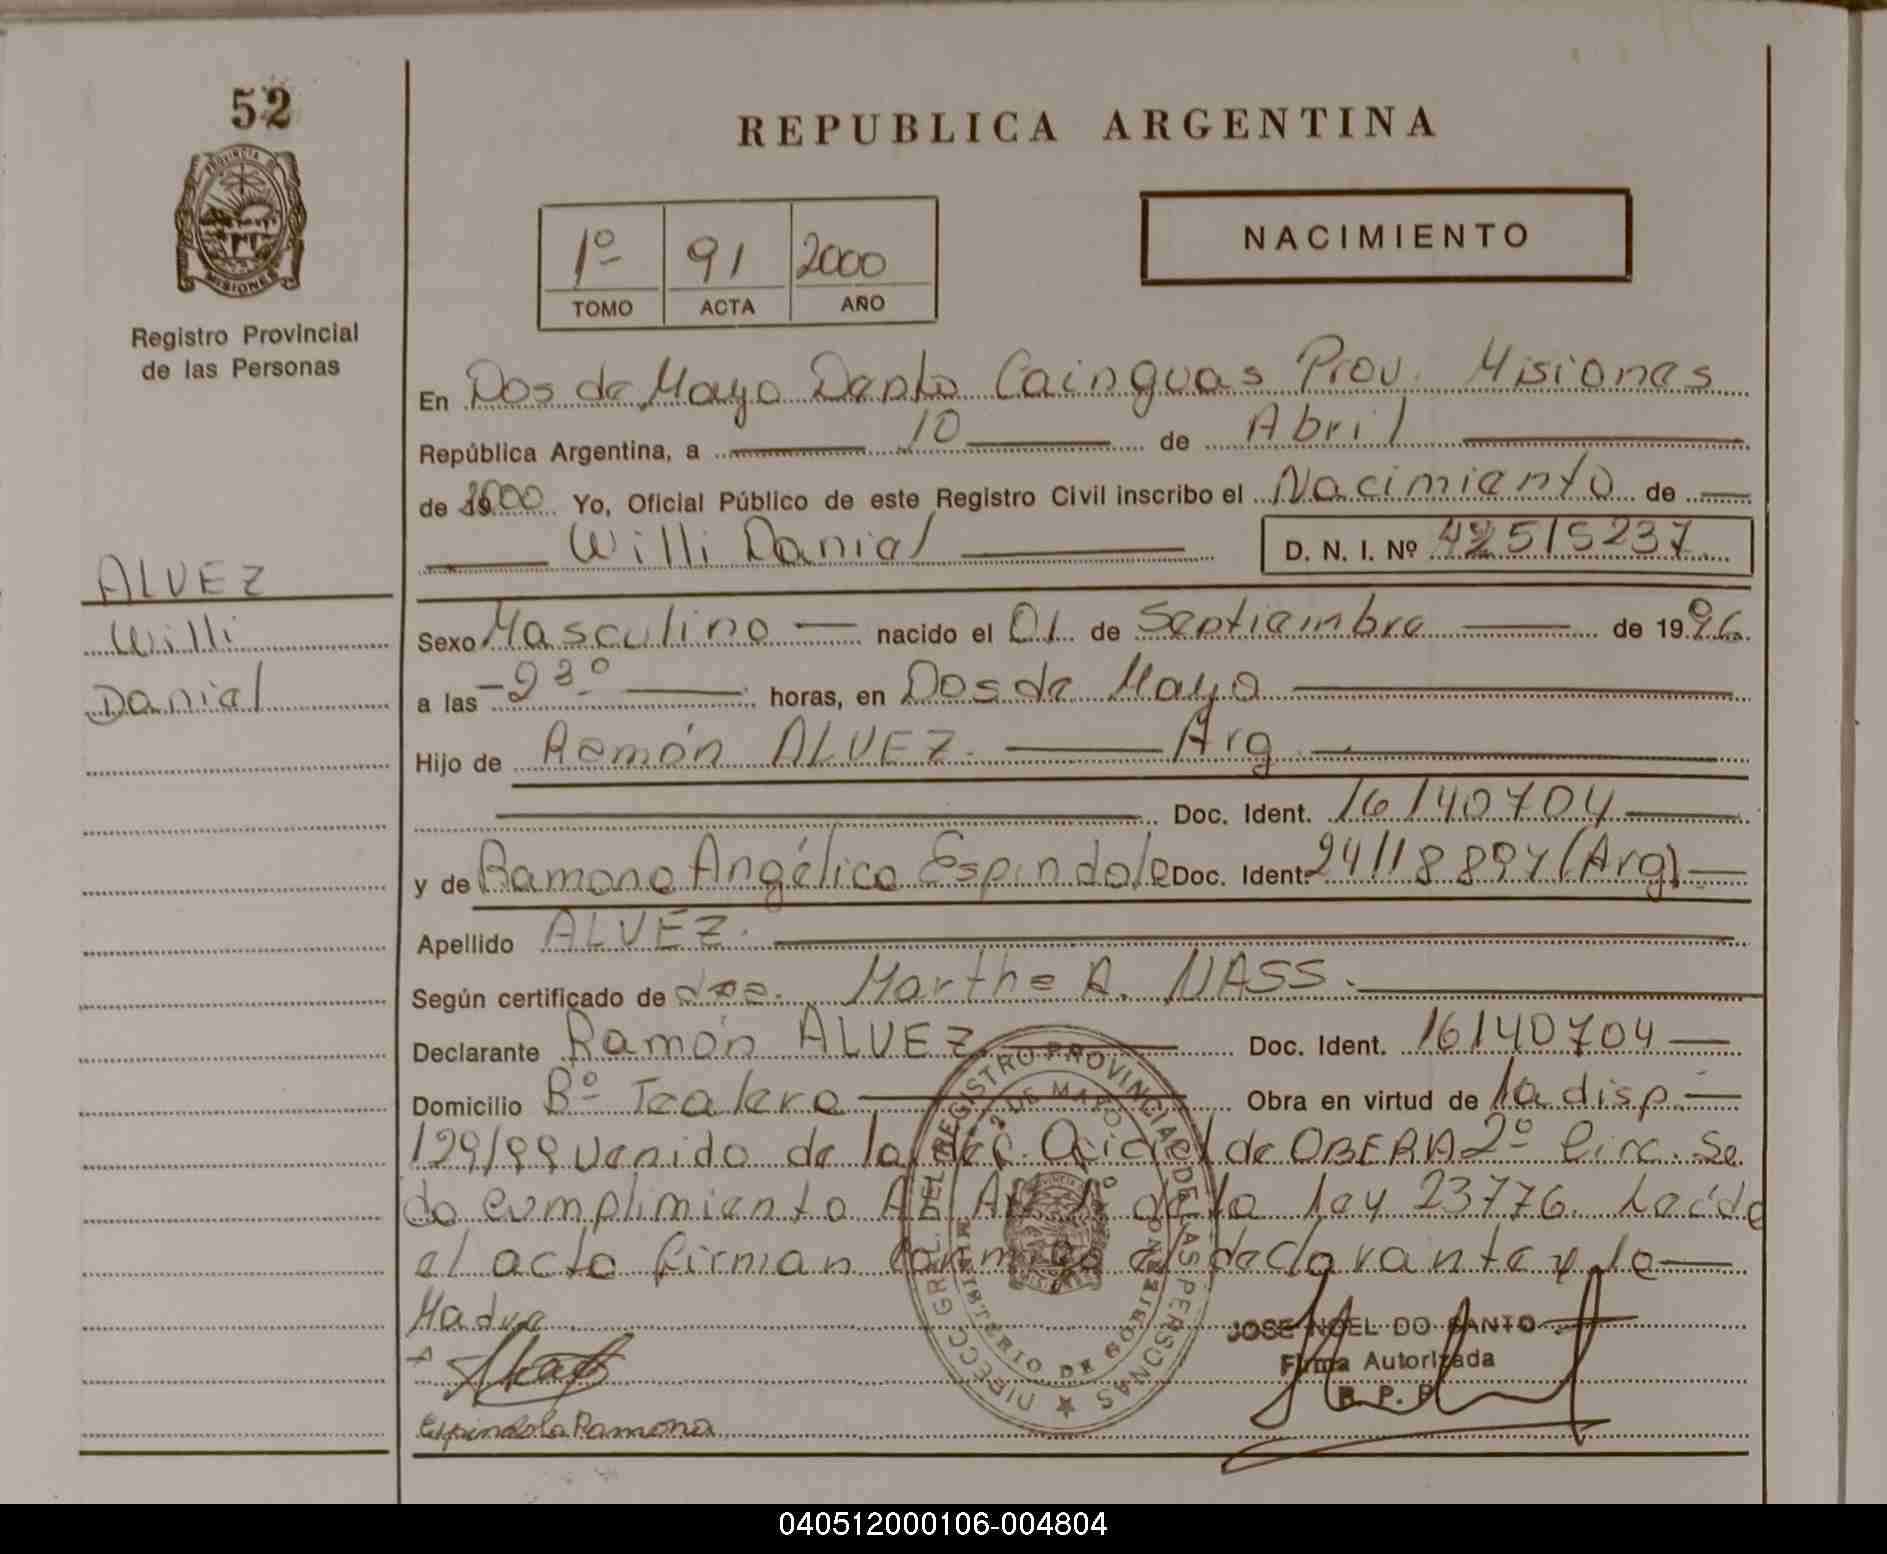 52
REPUBLICA ARGENTINA
PROVINCIA DE
MISIONES
1º 91 2000
TOMO ACTA AÑO
NACIMIENTO
Registro Provincial
de las Personas
En Dos de Mayo Depto Cainguas Prov. Misiones
República Argentina, a 10 de Abril
de 2000 Yo, Oficial Público de este Registro Civil inscribo el Nacimiento de
Willi Daniel D. N. I. Nº 42515237
ALVEZ
Willi
Daniel
Sexo Masculino nacido el 01 de Septiembre de 1996
a las 23º horas, en Dos de Mayo
Hijo de Ramón ALVEZ. Arg
Doc. Ident. 16140704
y de Ramona Angélica Espindola Doc. Ident. 24118897 (Arg)
Apellido ALVEZ.
Según certificado de dra. Martha A. NASS.
Declarante Ramón ALVEZ Doc. Ident. 16140704
Domicilio Bº Tealero Obra en virtud de la disp.
129/99 venido de la de OBERA 2º Circ. Se
da cumplimiento Al Art 1º de la ley 23776. Leída
el acta firman conmigo el declarante y la
Madre
Espindola Ramona
JOSE NOEL DO SANTO
Firma Autorizada
R. P. P.
DIRECC GRL. DEL REGISTRO PROVINCIAL DE LAS PERSONAS
2 DE MAYO
MINISTERIO DE GOBIERNO
040512000106-004804